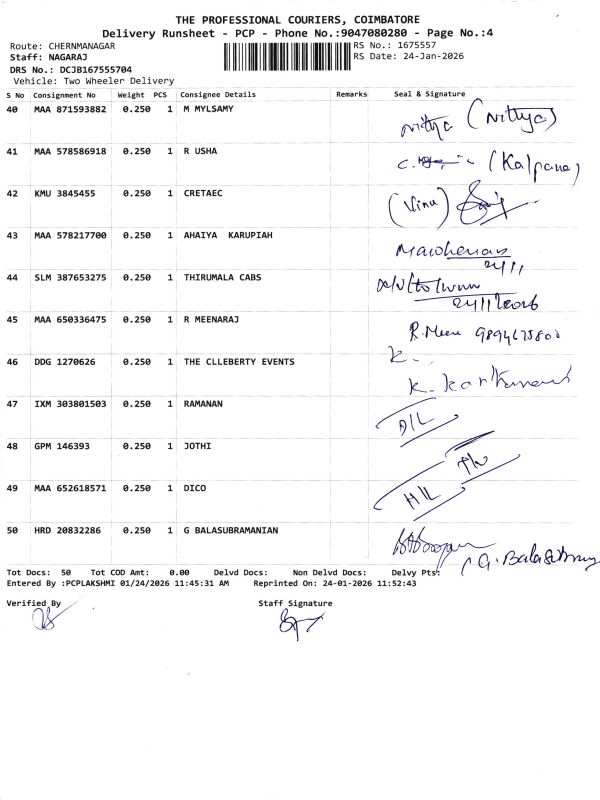 THE PROFESSIONAL COURIERS, COIMBATORE
Delivery Runsheet - PCP - Phone No.:9047080280 - Page No.:4
Route: CHERNMANAGAR RS No.: 1675557
Staff: NAGARAJ RS Date: 24-Jan-2026
DRS No.: DCJB167555704
Vehicle: Two Wheeler Delivery
S No Consignment No Weight PCS Consignee Details Remarks Seal & Signature
40 MAA 871593882 0.250 1 M MYLSAMY Nithya (Nithya)
41 MAA 578586918 0.250 1 R USHA (Kalpana)
42 KMU 3845455 0.250 1 CRETAEC (Vinu)
43 MAA 578217700 0.250 1 AHAIYA KARUPIAH
24/1
44 SLM 387653275 0.250 1 THIRUMALA CABS
24/1/2026
45 MAA 650336475 0.250 1 R MEENARAJ R. Meena
46 DDG 1270626 0.250 1 THE CLLEBERTY EVENTS K.
47 IXM 303801503 0.250 1 RAMANAN D/L
48 GPM 146393 0.250 1 JOTHI
49 MAA 652618571 0.250 1 DICO H/L
50 HRD 20832286 0.250 1 G BALASUBRAMANIAN
Tot Docs: 50 Tot COD Amt: 0.00 Delvd Docs: Non Delvd Docs: Delvy Pts:
Entered By :PCPLAKSHMI 01/24/2026 11:45:31 AM Reprinted On: 24-01-2026 11:52:43
Verified By Staff Signature